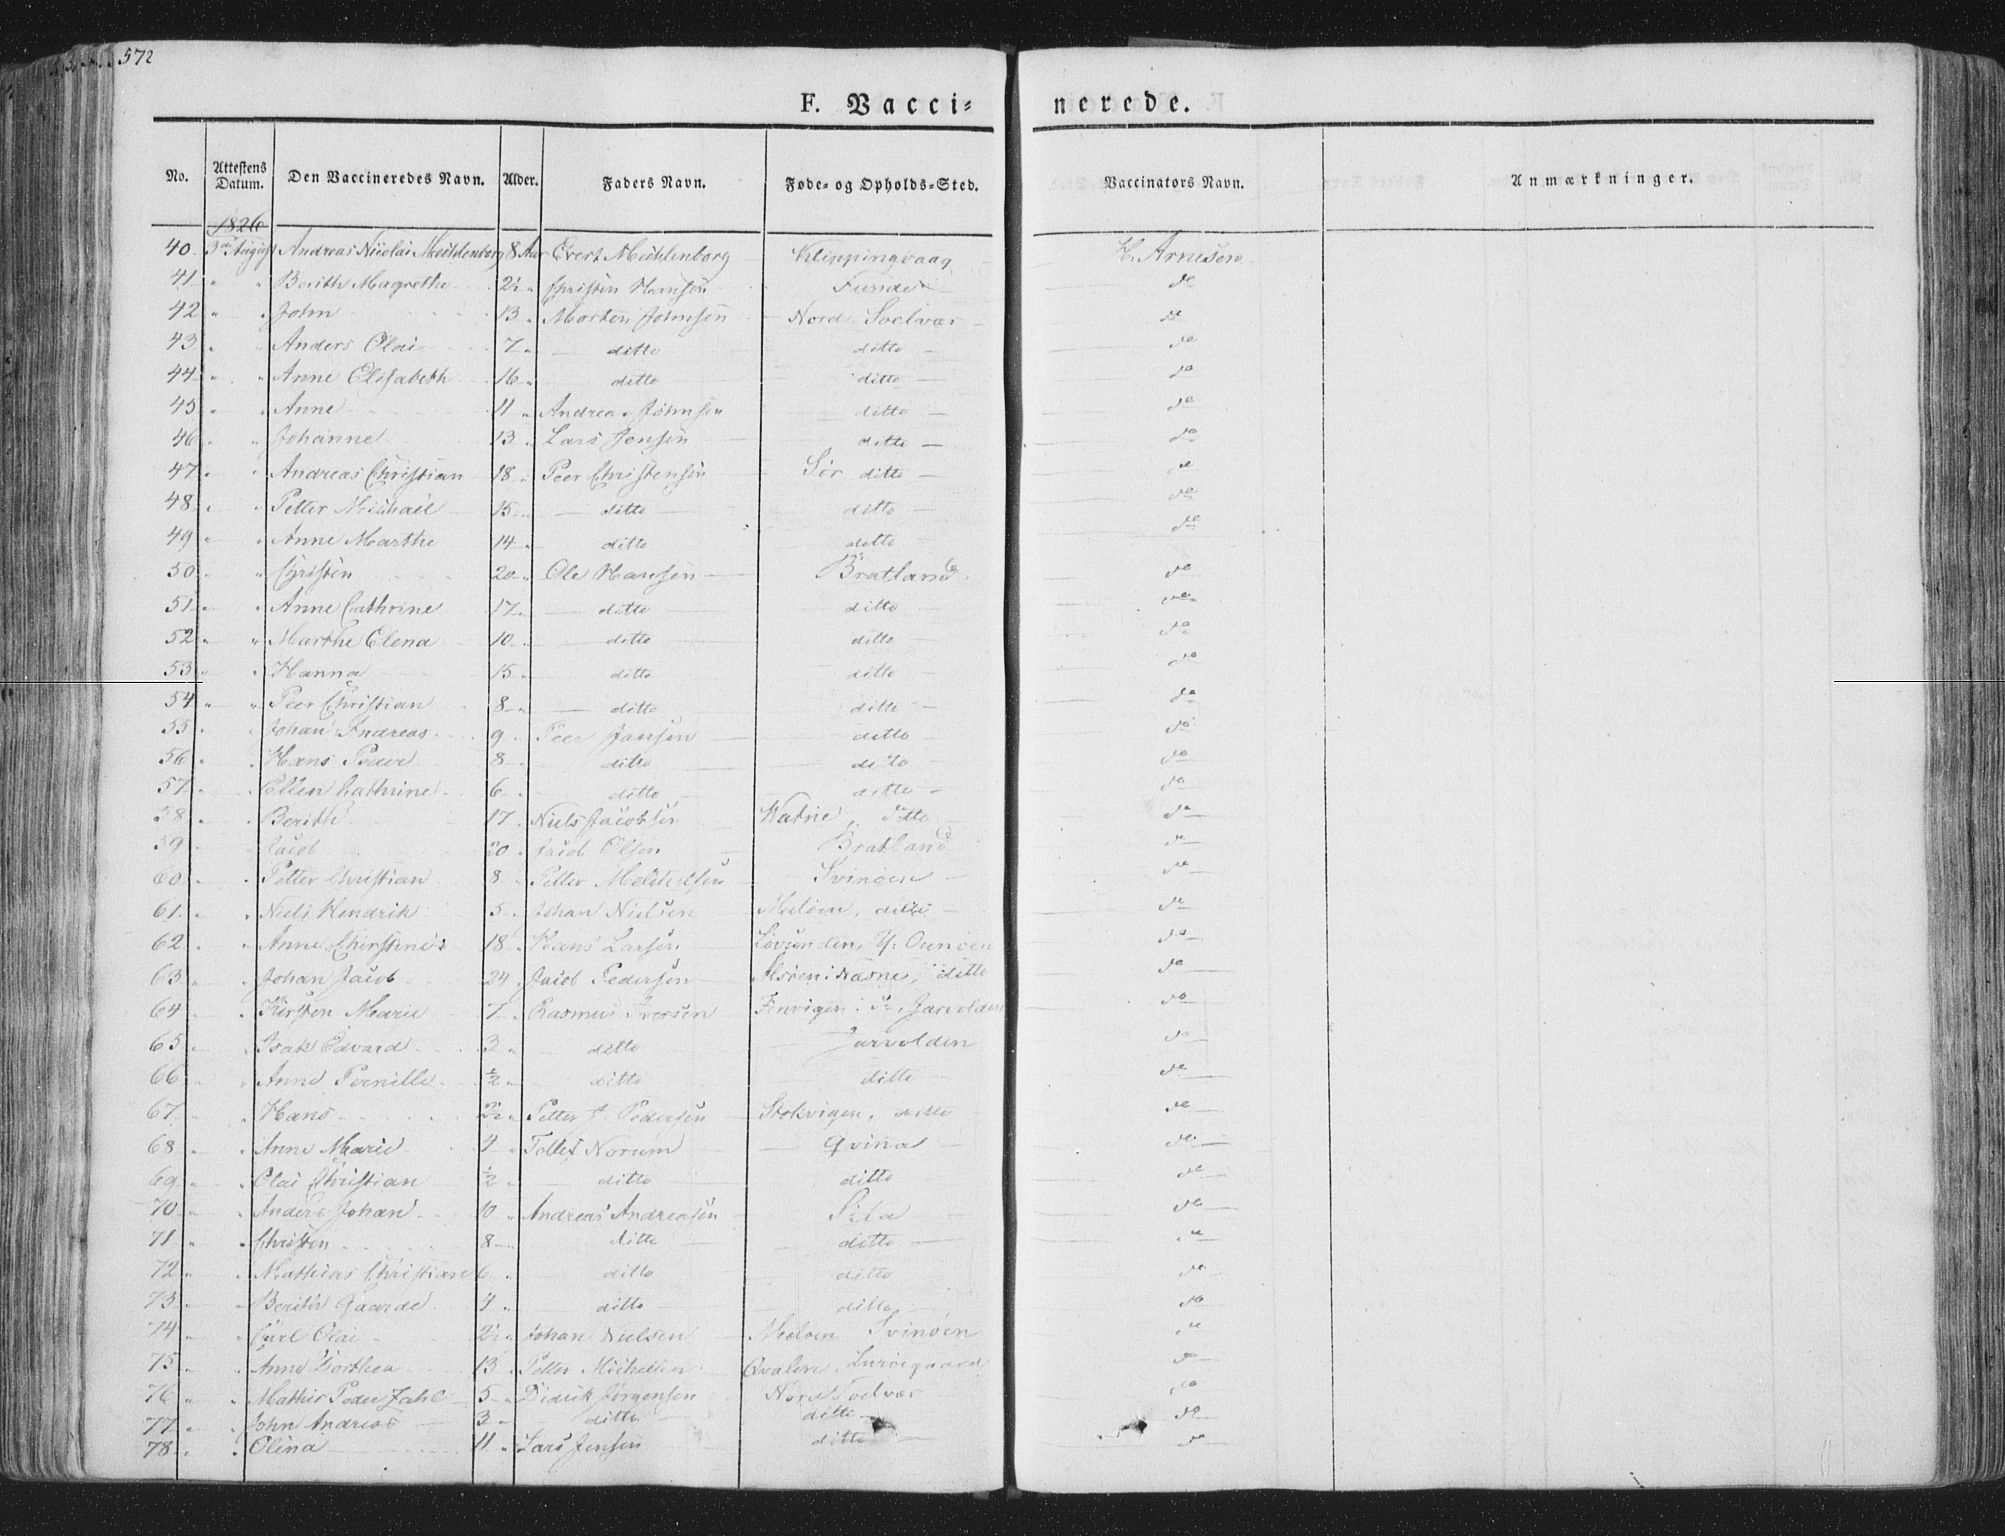 572
F. Vacci= nerede.
No. Attestens Datum. Den Vaccineredes Navn. Alder. Faders Navn. Føde= og Opholds=Sted. Vaccinators Navn. Anmærkninger.
1826
40 3 August Andreas Nicolai Mechlenborg 8 Aar Evert Mechlenborg Klippingvaag H. Arnesen
41 " " Berith Magrethe 2½ " Christen Hansen do
42 " " John 13 " Morten Johnsen Nord Soelvær do
43 " " Anders Olai 7 " ditto ditto do
44 " " Anne Elisabeth 16 " ditto ditto do
45 " " Anne 11 " Andreas Johnsen ditto do
46 " " Johanne 13 " Lars Jensen ditto do
47 " " Andreas Christian 18 " Peer Christensen Sør ditto do
48 " " Petter Michael 15 " ditto ditto do
49 " " Anne Marthe 14 " ditto ditto do
50 " " Christen 20 " Ole Hansen Bratland do
51 " " Anne Cathrine 17 " ditto ditto do
52 " " Marthe Elena 10 " ditto ditto do
53 " " Hanna 15 " ditto ditto do
54 " " Peer Christian 8 " ditto ditto do
55 " " Johan Andreas 9 " Peer Jansen ditto do
56 " " Hans Peder 8 " ditto ditto do
57 " " Ellen Cathrine 6 " ditto ditto do
58 " " Berith 17 " Niels Jacobsen ditto do
59 " " Jacob 20 " Jacob Olsen Bratland do
60 " " Petter Christian 8 " Petter Svinøen do
61 " " Niels Hendrik 5 " Johan Nielsen Meløen, ditto do
62 " " Anne 18 " Hans Larsen Lovunden, do
63 " " Johan Jacob 24 " Jacob Pedersen ditto do
64 " " Kirsten Marie 7 " Rasmus Iversen do
65 " " Isak Edvard 3 " ditto Jarvolden do
66 " " Anne Pernille ½ " ditto ditto do
67 " " Hans 2½ " Petter J Pedersen Stokvigen, ditto do
68 " " Anne Marie 4 " Tollef Norum Qvina do
69 " " Olai Christian ½ " ditto ditto do
70 " " Anders Johan 10 " Andreas Andreasen Sila do
71 " " Christen 8 " ditto ditto do
72 " " Mathias Christian 6 " ditto ditto do
73 " " Berith Gaarde 4 " ditto ditto do
74 " " Carl Olai 2½ " Johan Nielsen Meløen Svinøen do
75 " " Anne Dorthea 13 " Petter Michelsen Lurøegaard do
76 " " Mathis Peder Zahl 5 " Diderik Jørgensen Nord Soelvær do
77 " " John Andreas 3 " ditto ditto do
78 " " Olina 11 " Lars Jensen ditto do